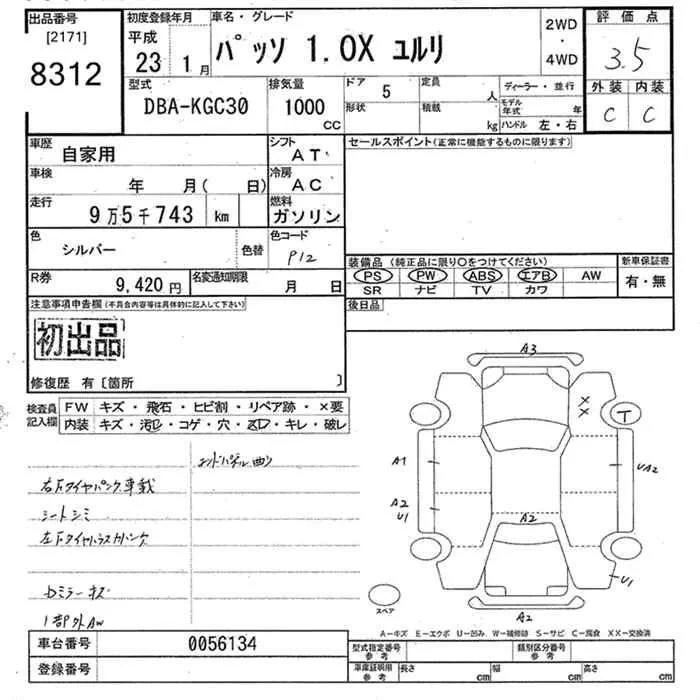 出品番号
[2171]
8312
初度登録年月
平成
23 1月
車名・グレード
パッソ 1.0X ユルリ
2WD
・
4WD
評価点
3.5
外装 内装
C C
型式
DBA-KGC30
排気量
1000
cc
ドア 5
形状
定員 人
積載 kg
ディーラー・並行
モデル年式 年
ハンドル 左・右
車歴 自家用
シフト AT
車検 年 月( 日)
冷房 AC
走行 9万5千743 km
燃料 ガソリン
色 シルバー 色替
色コード P12
R券 9,420円
名変通知期限 月 日
セールスポイント(正常に機能するものに限ります)
装備品 (純正品に限り〇をつけてください)
PS PW ABS エアB AW
SR ナビ TV カワ
新車保証書
有・無
後日品
注意事項申告欄(不具合内容等は具体的に記入して下さい)
初出品
修復歴 有〔箇所 〕
検査員記入欄
FW キズ・飛石・ヒビ割・リペア跡・×要
内装 キズ・汚レ・コゲ・穴・スレ・キレ・破レ
エンドパネル曲り
右下タイヤパンク車載
シートシミ
Dミラーキズ
1部外AW
A3
×
×
T
A1
UA2
A2
U1
A2
U1
スペア
A2
A-キズ E-エクボ U-凹み W-補修跡 S-サビ C-腐食 XX-交換済
車台番号 0056134
登録番号
型式指定番号
参考
類別区分番号
参考
車庫証明用
参考
長さ cm
幅 cm
高さ cm